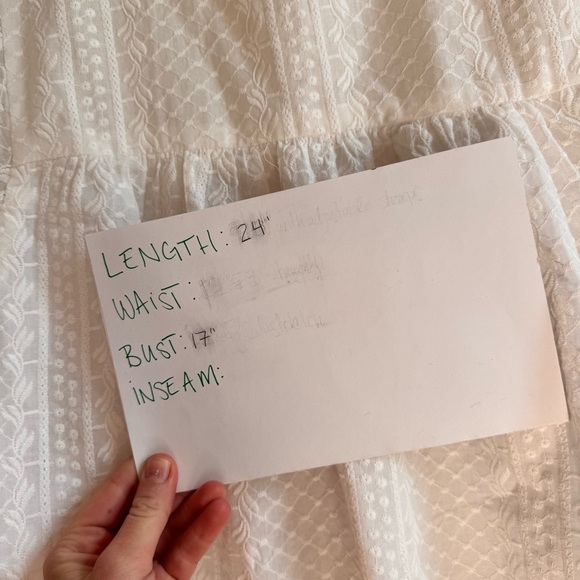 LENGTH: 24"
WAIST:
BUST: 17"
INSEAM: